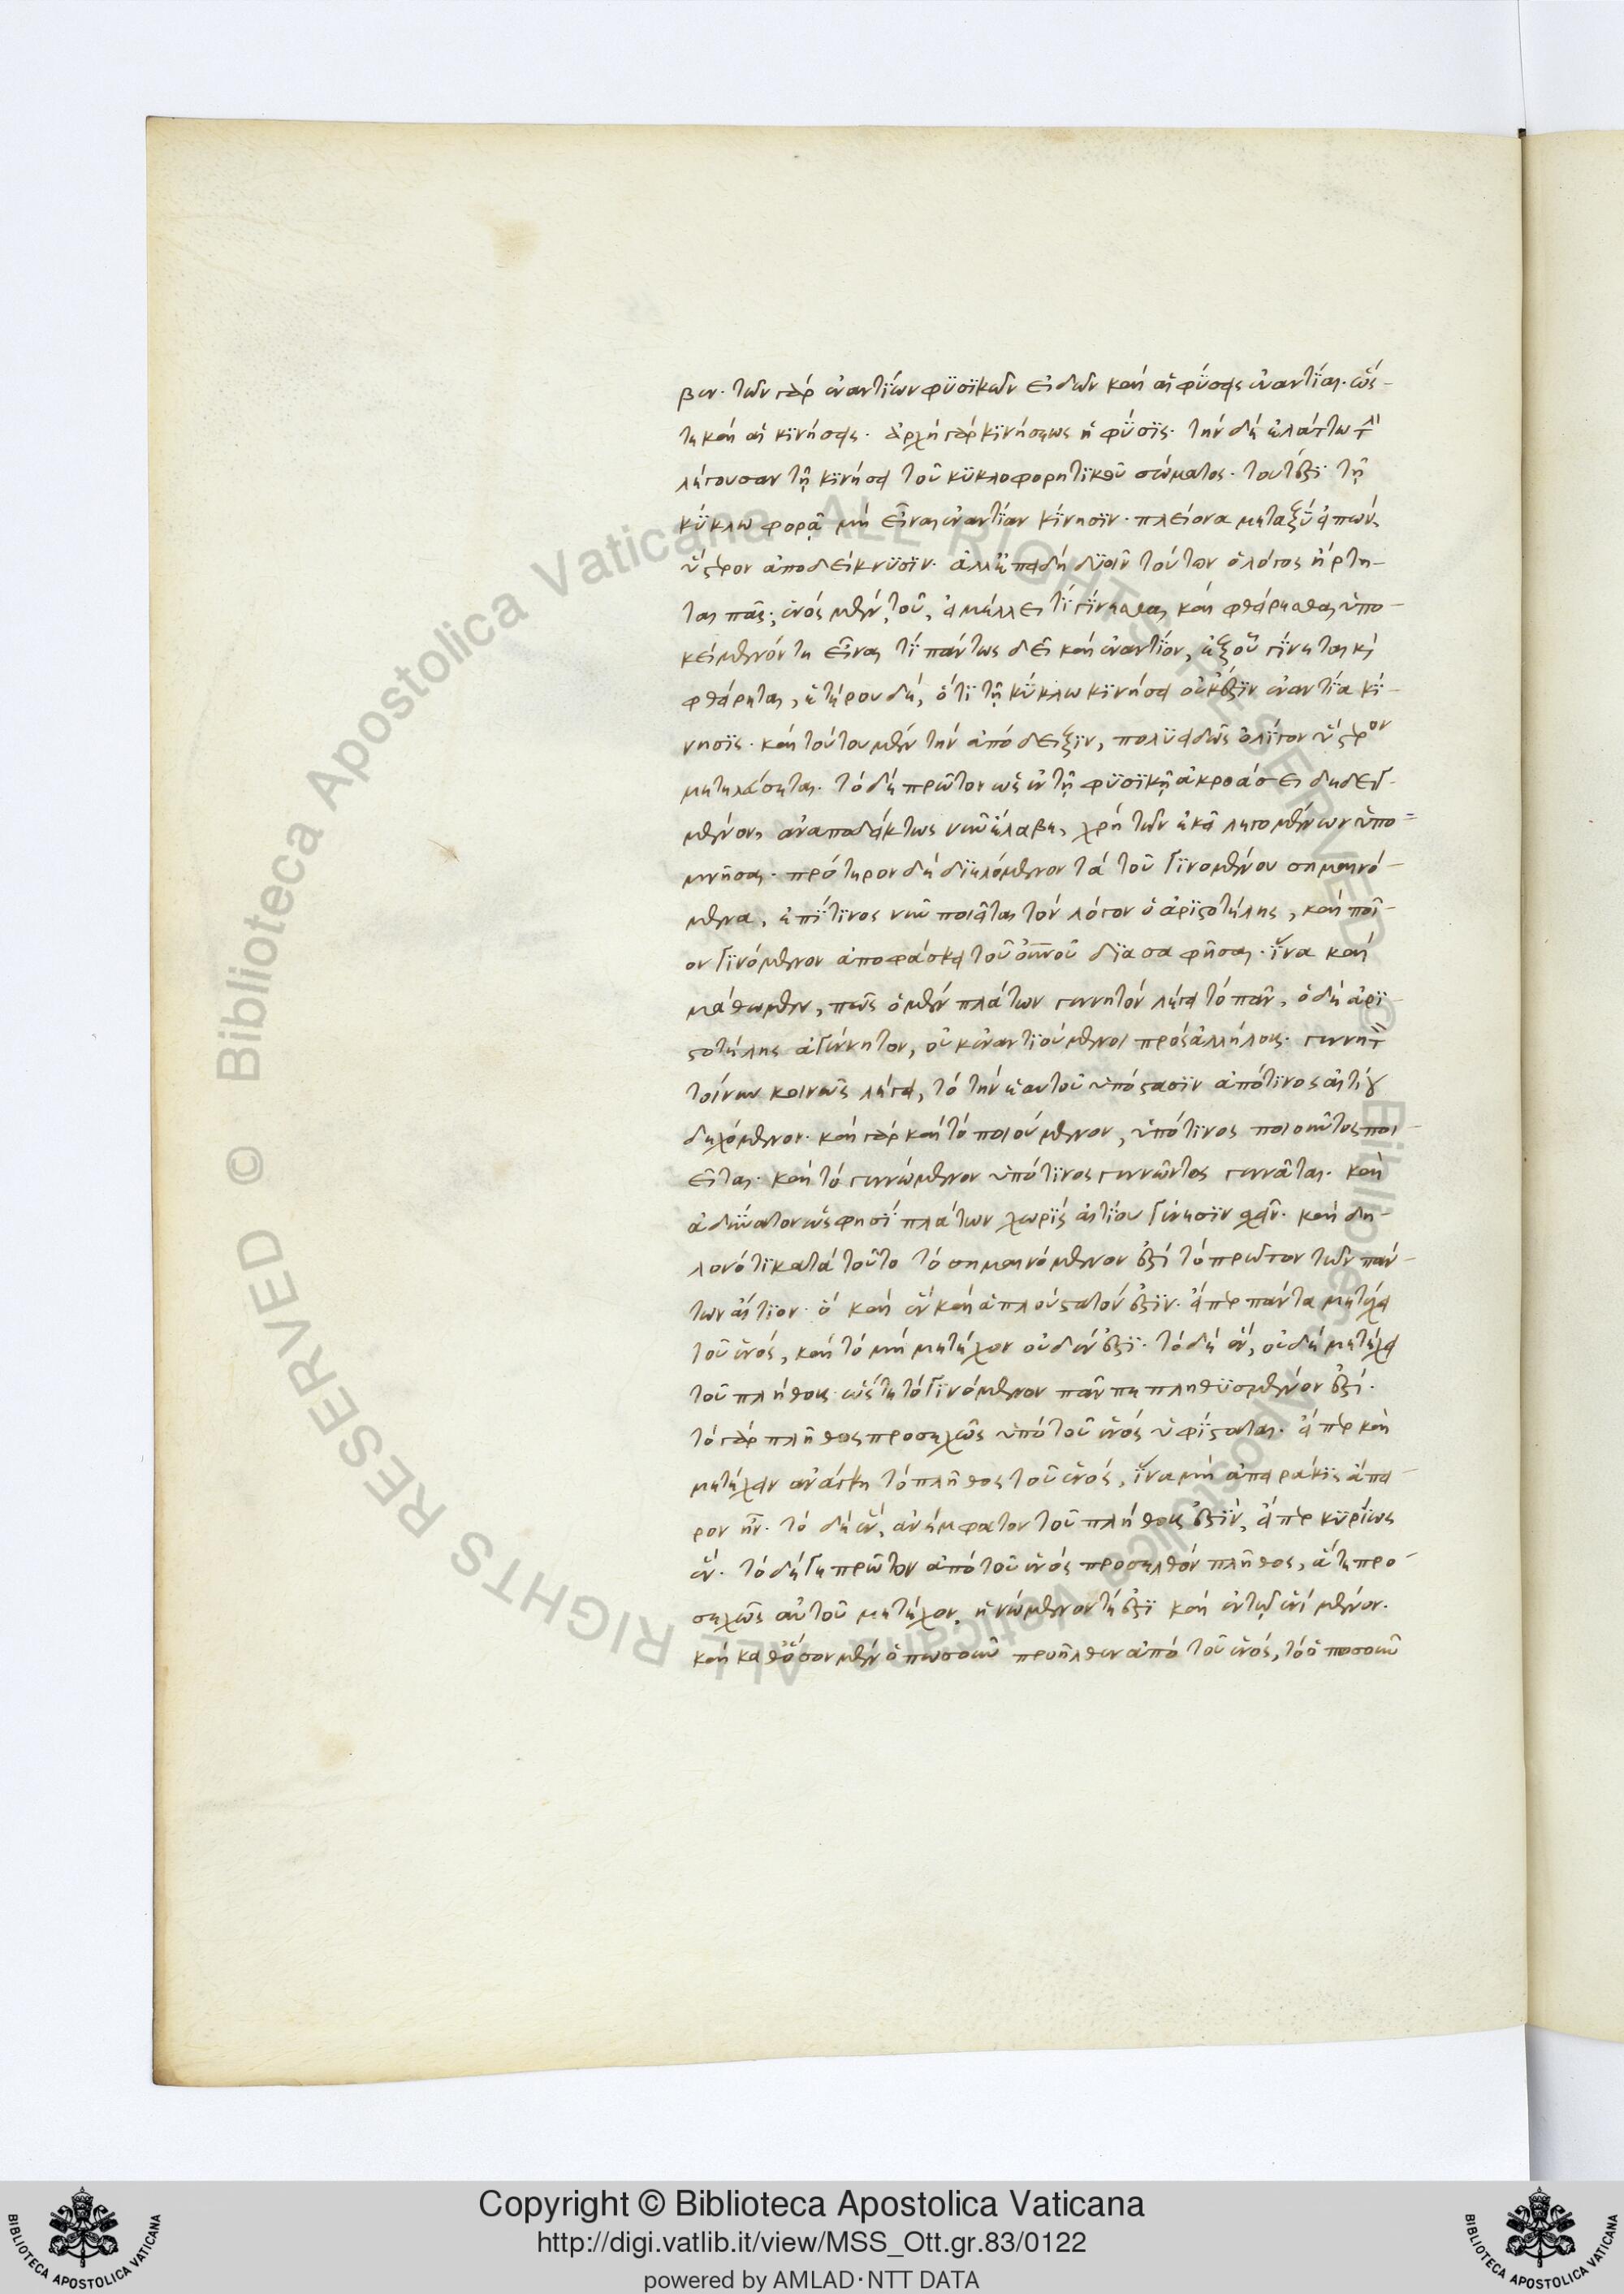 βεν. τῶν γὰρ ἐναντίων φϋσϊκῶν εἰδῶν καὶ αἱ φύσεις ἐναντίαι. ὥσ-
τε καὶ αἱ κϊνήσεις. ἀρχὴ γὰρ κϊνήσεως ἡ φύσϊς. τὴν δὲ ἐλάττω τὴν
λέγουσαν τῇ κϊνήσει τοῦ κϋκλοφορητϊκοῦ σώματος. τουτέστϊ τῇ
κύκλω φορᾷ μὴ εἶναι ἐναντίαν κίνησϊν. πλείονα μεταξὺ εἰπὼν,
ὕστερον ἀποδείκνϋσϊν. ἀλλ' ἐπειδὴ δϋοῖν τούτων ὁ λόγος ἤρτη-
ται πᾶς, ἑνὸς μὲν, τοῦ, εἰ μέλλει τϊ γίνεσθαι καὶ φθείρεσθαι ὑπο-
κείμενόν τε εἶναί τϊ πάντως δεῖ καὶ ἐναντίον, ἐξ οὗ γίνεται κὶ
φθείρεται, ἑτέρου δὲ, ὅτϊ τῇ κύκλω κϊνήσει οὐκ ἔστϊν ἐναντία κί-
νησϊς. καὶ τούτου μὲν τὴν ἀπόδειξϊν, πολϋειδῶς ὀλίγον ὕστερον
μετελεύσεται. τὸ δὲ πρῶτον ὡς ἐν τῇ φϋσϊκῇ ἀκροάσει δεδειγ-
μένον, ἀναποδείκτως νῦν ἔλαβε, χρὴ τῶν ἐκεῖ λεγομένων ὑπο-
μνῆσαι. πρότερον δὲ δϊελόμενον τὰ τοῦ γϊνομένου σημαινό-
μενα, ἐπί τϊνος νῦν ποιεῖται τὸν λόγον ὁ ἀρϊστοτέλης, καὶ ποῖ-
ον γϊνόμενον ἀποφάσκει τοῦ οὐνοῦ δϊασαφῆσαι. ἵνα καὶ
μάθωμεν, πῶς ὁ μὲν πλάτων γεννητὸν λέγει τὸ πᾶν, ὁ δὲ ἀρϊ-
στοτέλης ἀγέννητον, οὐκ ἐναντϊούμενοι πρὸς ἀλλήλους. γεννητὸν
τοίνυν κοινῶς λέγει, τὸ τὴν ἑαυτοῦ ὑπόστασϊν ἀπό τϊνος αἰτίου
δεχόμενον. καὶ γὰρ καὶ τὸ ποιούμενον, ὑπό τϊνος ποιοῦντος ποι-
εῖται. καὶ τὸ γεννώμενον ὑπό τϊνος γεννῶντος γεννᾶται. καὶ
ἀδύνατον ὥς φησϊ πλάτων χωρὶς αἰτίου γένεσϊν σχεῖν. καὶ δη-
λονότϊ κατὰ τοῦτο τὸ σημαινόμενον ἐστὶ τὸ πρῶτον τῶν πάν-
των αἴτϊον. ὃ καὶ ἓν καὶ ἁπλούστατόν ἐστϊν. εἴπερ πάντα μετέχει
τοῦ ἑνὸς, καὶ τὸ μὴ μετέχον οὐδέν ἐστϊ. τὸ δὲ ἓν, οὐδὲ μετέχει
τοῦ πλήθους. ὥστε τὸ γϊνόμενον πᾶν πεπληθϋσμένον ἐστί.
τὸ γὰρ πλῆθος προσεχῶς ὑπὸ τοῦ ἑνὸς ὑφίσταται. εἴπερ καὶ
μετέχειν ἀνάγκη τὸ πλῆθος τοῦ ἑνὸς, ἵνα μὴ ἀπειράκϊς ἄπει-
ρον ἦν. τὸ δὲ ἓν, ἀνέμφατον τοῦ πλήθους ἐστϊν, εἴπερ κϋρίως
ἕν. τὸ δέ γε πρῶτον ἀπὸ τοῦ ἑνὸς προσελθὸν πλῆθος, ἅτε προ-
σεχῶς αὐτοῦ μετέχον, ἡνώμενόν τέ ἐστϊ καὶ ἐν τῷ ἑνὶ μένον.
καὶ καθόσον μὲν ὁπωσοῦν προῆλθεν ἀπὸ τοῦ ἑνὸς, τὸ ὁποσοῦν
Copyright © Biblioteca Apostolica Vaticana
http://digi.vatlib.it/view/MSS_Ott.gr.83/0122
powered by AMLAD·NTT DATA
BIBLIOTECA APOSTOLICA VATICANA
BIBLIOTECA APOSTOLICA VATICANA
© Biblioteca Apostolica Vaticana ALL RIGHTS RESERVED
© Biblioteca Apostolica Vaticana ALL RIGHTS RESERVED